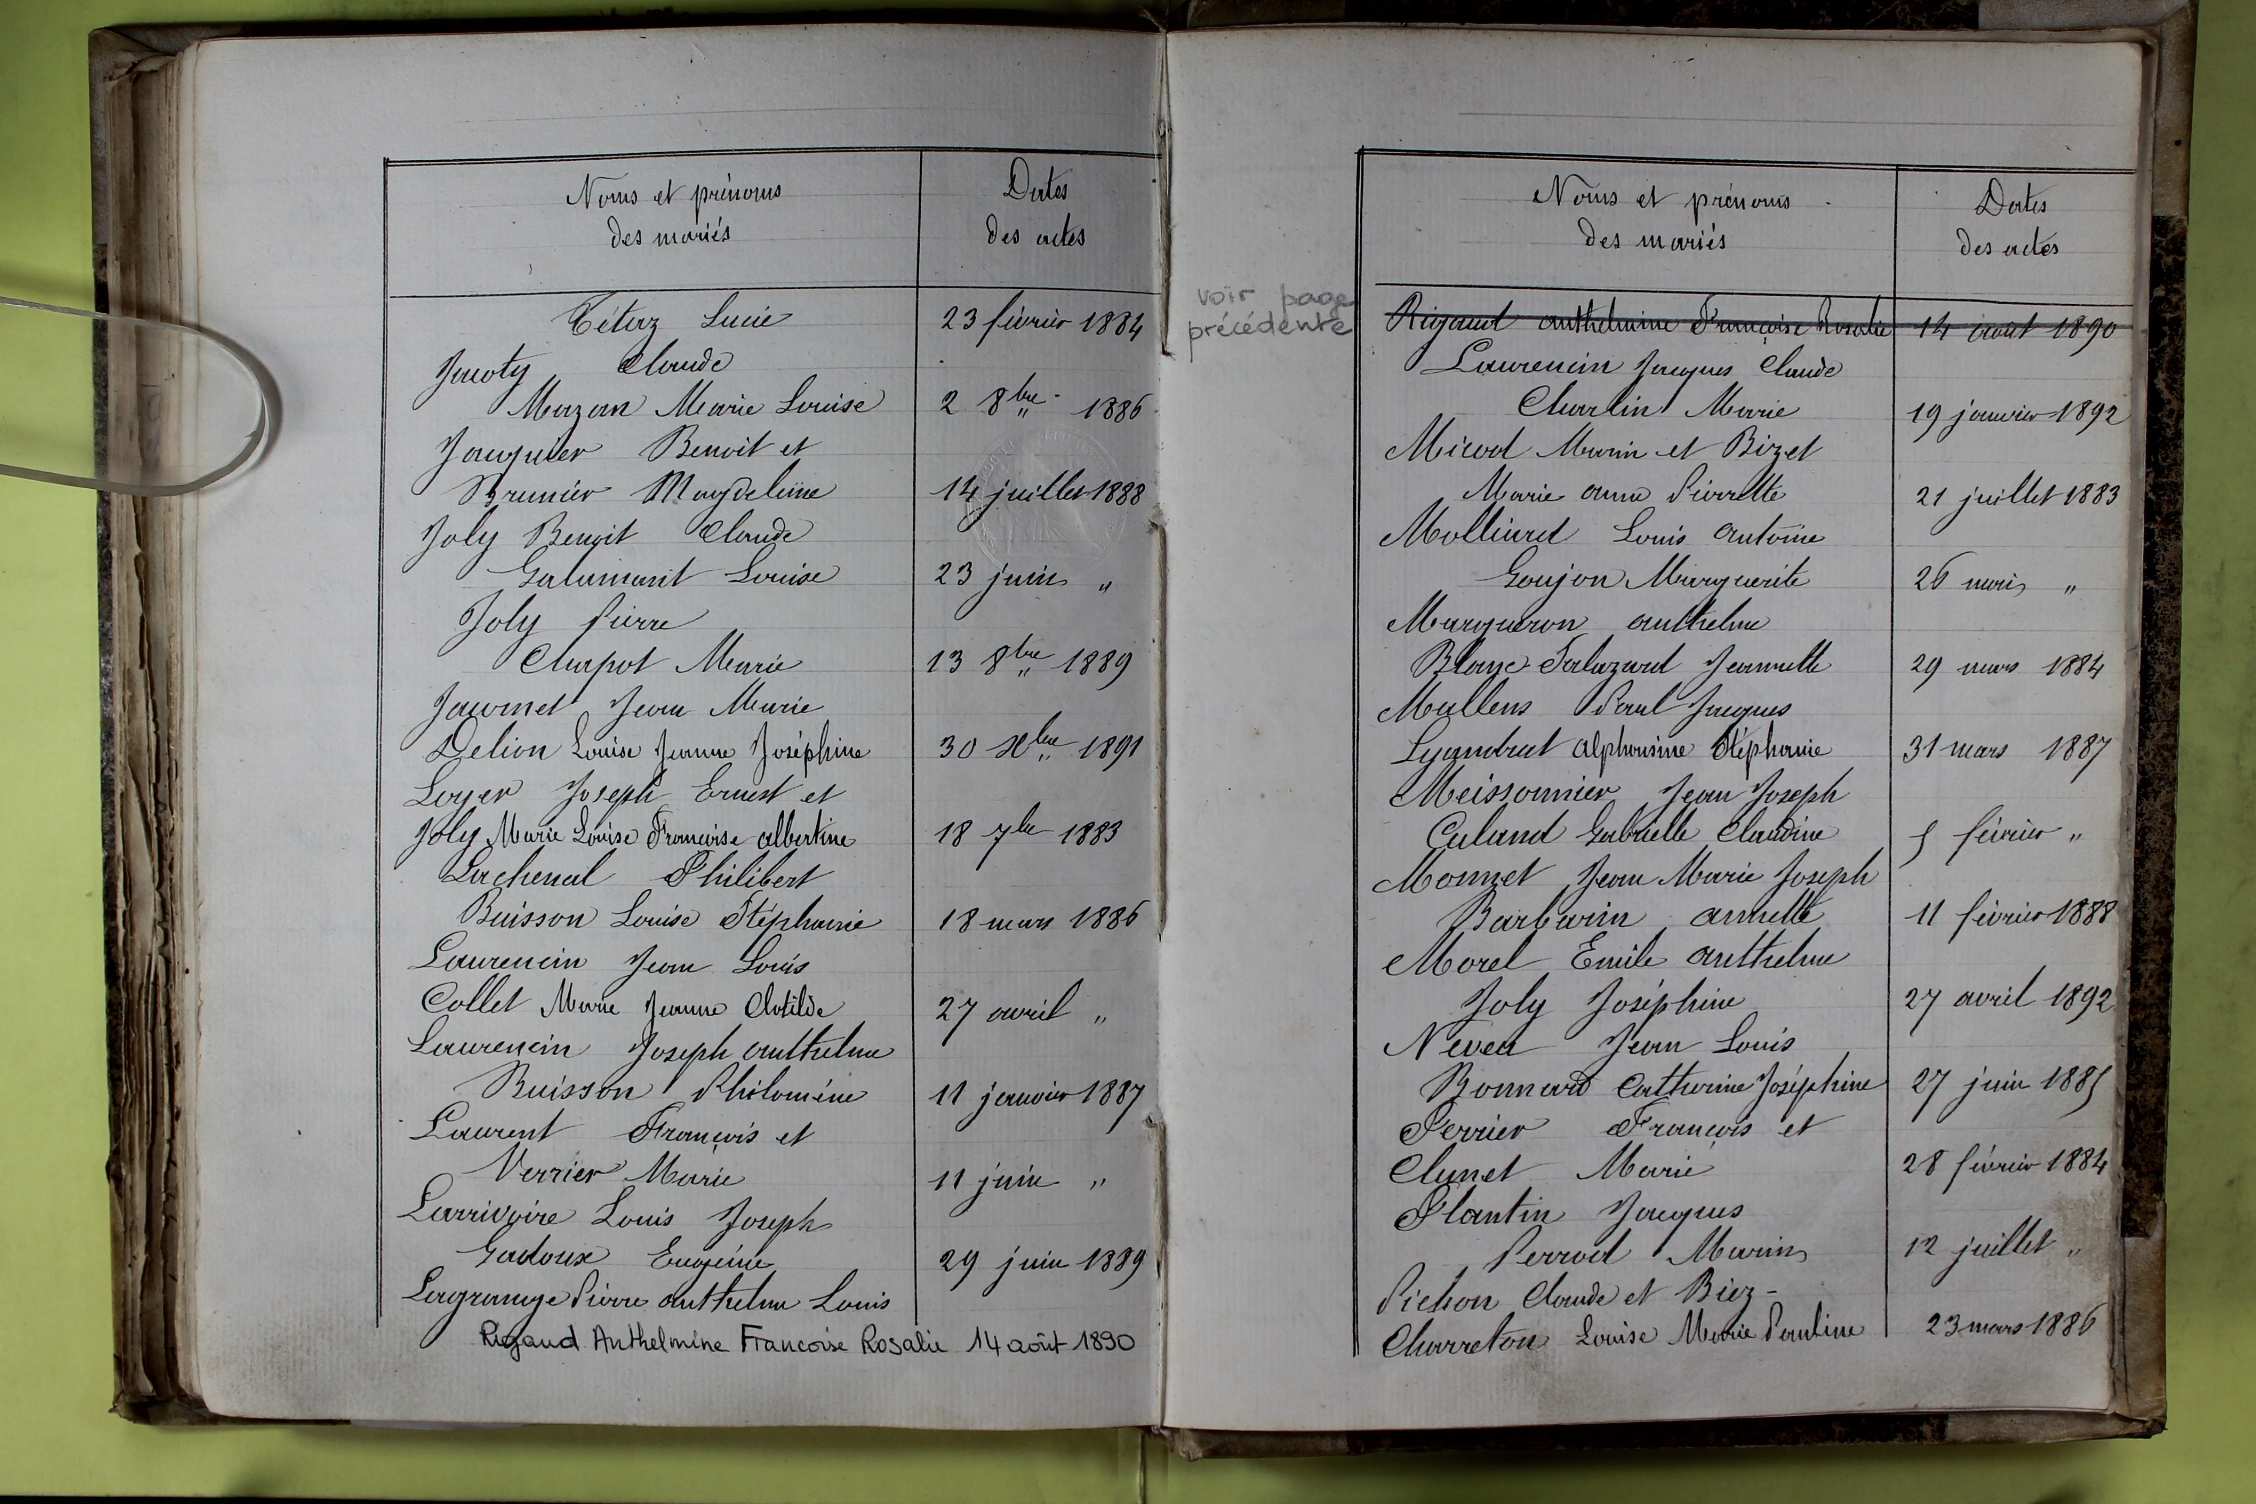 Noms et prénoms
des mariés
Dates
des actes
Tétaz Lucie 23 février 1884
Jacoty Claude
Mazan Marie Louise 2 8bre 1886
Jacquier Benoit et
Brunier Magdeleine 14 juillet 1888
Joly Benoit Claude
Galamant Louise 23 juin "
Joly Pierre
Chapot Marie 13 8bre 1889
Jaumet Jean Marie
Delion Louise Jeanne Joséphine 30 Xbre 1891
Loyer Joseph Ernest et
Joly Marie Louise Françoise Albertine 18 7bre 1883
Lachenal Philibert
Buisson Louise Stéphanie 18 mars 1886
Laurencin Jean Louis
Collet Marie Jeanne Clotilde 27 avril "
Laurencin Joseph Anthelme
Buisson Philomène 11 janvier 1887
Laurent François et
Verrier Marie 11 juin "
Larrivoire Louis Joseph
Gadoux Eugénie 29 juin 1889
Lagrange Pierre Anthelme Louis
Rigaud Anthelmine Francoise Rosalie 14 août 1890
Noms et prénoms
des mariés
Dates
des actes
voir page
précédente
Rigaud Anthelmine Françoise Rosalie 14 aout 1890
Laurencin Jacques Claude
Charlin Marie 19 janvier 1892
Micod Marin et Bizet
Marie Anne Pierrette 21 juillet 1883
Molliard Louis Antoine
Goujon Marguerite 26 mars "
Marqueron Anthelme
Blanc Talazard Jeannette 29 mars 1884
Mallens Paul Jacques
Lyandrat Alphonsine Stéphanie 31 mars 1887
Meissonnier Jean Joseph
Caland Gabrielle Claudine 5 février "
Monnet Jean Marie Joseph
Barbarin Annette 11 février 1888
Morel Emile Anthelme
Joly Joséphine 27 avril 1892
Neveu Jean Louis
Bonnard Catherine Joséphine 27 juin 1885
Perrier François et
Clunet Marie 28 février 1884
Plantin Jacques
Perrod Marin 12 juillet "
Pichon Claude et Biez-
Charreton Louise Marie Pauline 23 mars 1886